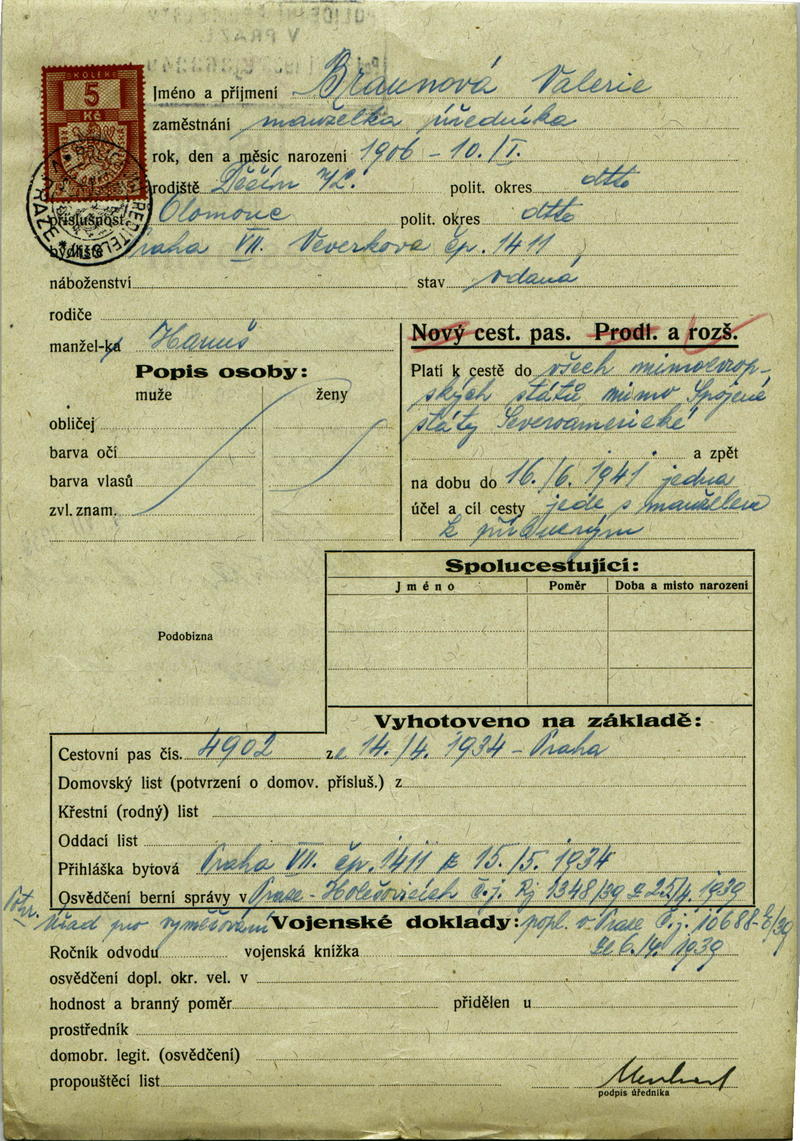 KOLEK
5
Kč
Jméno a příjmení Braunová Valerie
zaměstnání manželka úředníka
rok, den a měsíc narozeni 1906 - 10./I.
rodiště Děčín n/L. polit. okres dtto
příslušnost Olomouc polit. okres dtto
bydliště Praha VII. Veverkova čp. 1411
náboženství stav vdaná
rodiče
manžel-ka Hanuš
Nový cest. pas. Prodl. a rozš.
Popis osoby:
muže ženy
obličej
barva očí
barva vlasů
zvl. znam.
Platí k cestě do všech mimoevrop-
ských států mimo Spojené
státy Severoamerické
a zpět
na dobu do 16./6. 1941 jedna
účel a cíl cesty jede s manželem
k příbuzným
Spolucestující:
Jméno Poměr Doba a misto narození
Podobizna
Vyhotoveno na základě:
Cestovní pas čís. 4902 ze 14./4. 1934 - Praha
Domovský list (potvrzení o domov. přísluš.) z
Křestní (rodný) list
Oddací list
Přihláška bytová Praha VII. čp. 1411 z 15./5. 1934
Osvědčení berní správy v Praze - Holešovicích č.j. Rj 1348/39 z 25/4. 1939
Potvr. Úřad pro vyměřování popl. v Praze č.j. 10688-E/39
ze 6./4. 1939
Vojenské doklady:
Ročník odvodu vojenská knížka
osvědčení dopl. okr. vel. v
hodnost a branný poměr přidělen u
prostředník
domobr. legit. (osvědčení)
propouštěcí list
podpis úředníka